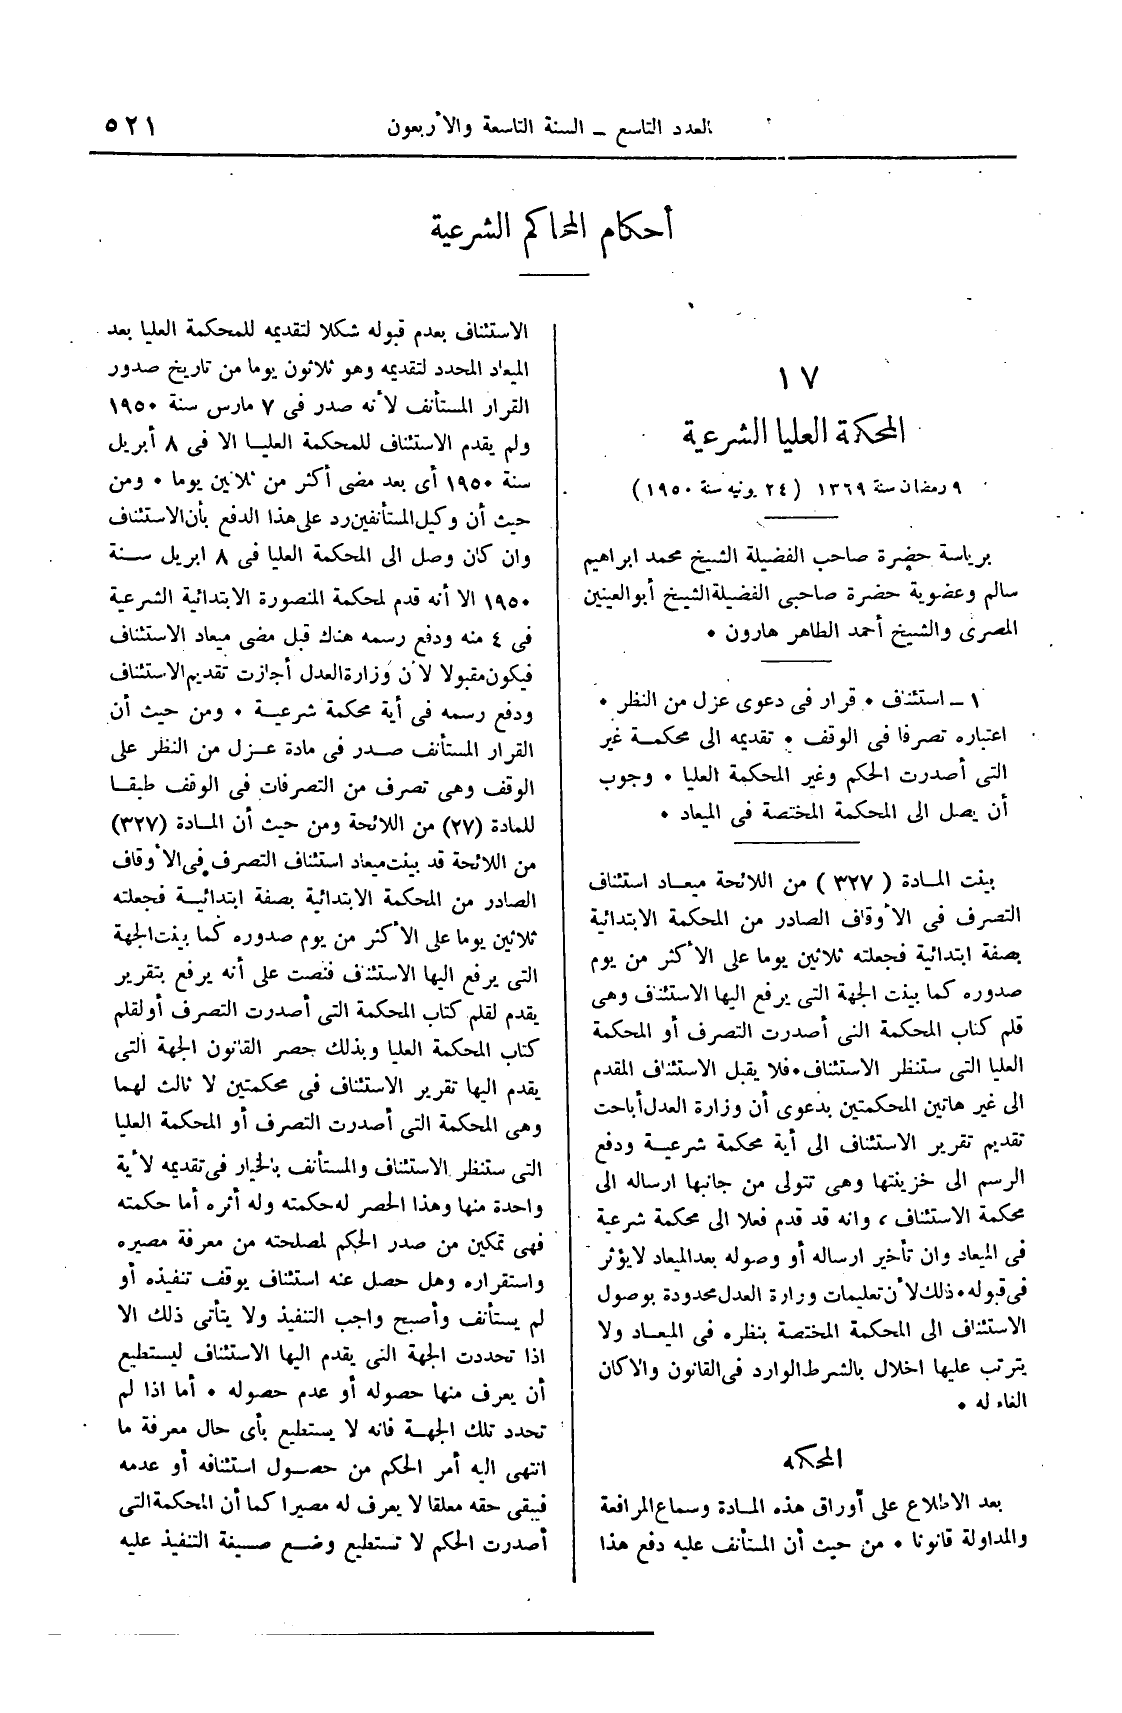 العدد التاسع ــ السنة التاسعة والأربعون
٥٢١
أحكام المحاكم الشرعية
١٧
المحكمة العليا الشرعية
٩ رمضان سنة ١٣٦٩ (٢٤ يونيه سنة ١٩٥٠)
برياسة حضرة صاحب الفضيلة الشيخ محمد ابراهيم
سالم وعضوية حضرة صاحبى الفضيلة الشيخ أبو العينين
المصرى والشيخ أحمد الطاهر هارون ٠
١ ــ استئناف ٠ قرار فى دعوى عزل من النظر ٠
اعتباره تصرفا فى الوقف ٠ تقديمه الى محكمة غير
التى أصدرت الحكم وغير المحكمة العليا ٠ وجوب
أن يصل الى المحكمة المختصة فى الميعاد ٠
بينت المادة ( ٣٢٧ ) من اللائحة ميعاد استئناف
التصرف فى الأوقاف الصادر من المحكمة الابتدائية
بصفة ابتدائية فجعلته ثلاثين يوما على الأكثر من يوم
صدوره كما بينت الجهة التى يرفع اليها الاستئناف وهى
قلم كتاب المحكمة التى أصدرت التصرف أو المحكمة
العليا التى ستنظر الاستئناف ٠ فلا يقبل الاستئناف المقدم
الى غير هاتين المحكمتين بدعوى أن وزارة العدل أباحت
تقديم تقرير الاستئناف الى أية محكمة شرعية ودفع
الرسم الى خزينتها وهى تتولى من جانبها ارساله الى
محكمة الاستئناف ، وانه قد قدم فعلا الى محكمة شرعية
فى الميعاد وان تأخير ارساله أو وصوله بعد الميعاد لا يؤثر
فى قبوله ٠ ذلك لأن تعليمات وزارة العدل محدودة بوصول
الاستئناف الى المحكمة المختصة بنظره فى الميعاد ولا
يترتب عليها اخلال بالشرط الوارد فى القانون والا كان
الغاء له ٠
المحكمه
بعد الاطلاع على أوراق هذه المادة وسماع المرافعة
والمداولة قانونا ٠ من حيث أن المستأنف عليه دفع هذا
الاستئناف بعدم قبوله شكلا لتقديمه للمحكمة العليا بعد
الميعاد المحدد لتقديمه وهو ثلاثون يوما من تاريخ صدور
القرار المستأنف لأنه صدر فى ٧ مارس سنة ١٩٥٠
ولم يقدم الاستئناف للمحكمة العليا الا فى ٨ أبريل
سنة ١٩٥٠ أى بعد مضى أكثر من ثلاثين يوما ٠ ومن
حيث أن وكيل المستأنفين رد على هذا الدفع بأن الاستئناف
وان كان وصل الى المحكمة العليا فى ٨ ابريل سنة
١٩٥٠ الا أنه قدم لمحكمة المنصورة الابتدائية الشرعية
فى ٤ منه ودفع رسمه هناك قبل مضى ميعاد الاستئناف
فيكون مقبولا لأن وزارة العدل أجازت تقديم الاستئناف
ودفع رسمه فى أية محكمة شرعية ٠ ومن حيث أن
القرار المستأنف صدر فى مادة عزل من النظر على
الوقف وهى تصرف من التصرفات فى الوقف طبقا
للمادة (٢٧) من اللائحة ومن حيث أن المادة (٣٢٧)
من اللائحة قد بينت ميعاد استئناف التصرف فى الأوقاف
الصادر من المحكمة الابتدائية بصفة ابتدائية فجعلته
ثلاثين يوما على الأكثر من يوم صدوره كما بينت الجهة
التى يرفع اليها الاستئناف فنصت على أنه يرفع بتقرير
يقدم لقلم كتاب المحكمة التى أصدرت التصرف أو لقلم
كتاب المحكمة العليا وبذلك حصر القانون الجهة التى
يقدم اليها تقرير الاستئناف فى محكمتين لا ثالث لهما
وهى المحكمة التى أصدرت التصرف أو المحكمة العليا
التى ستنظر الاستئناف والمستأنف بالخيار فى تقديمه لأية
واحدة منها وهذا الحصر له حكمته وله أثره أما حكمته
فهى تمكين من صدر الحكم لمصلحته من معرفة مصيره
واستقراره وهل حصل عنه استئناف يوقف تنفيذه أو
لم يستأنف وأصبح واجب التنفيذ ولا يتأتى ذلك الا
اذا تحددت الجهة التى يقدم اليها الاستئناف ليستطيع
أن يعرف منها حصوله أو عدم حصوله ٠ أما اذا لم
تحدد تلك الجهة فانه لا يستطيع بأى حال معرفة ما
انتهى اليه أمر الحكم من حصول استئنافه أو عدمه
فيبقى حقه معلقا لا يعرف له مصيرا كما أن المحكمة التى
أصدرت الحكم لا تستطيع وضع صيغة التنفيذ عليه